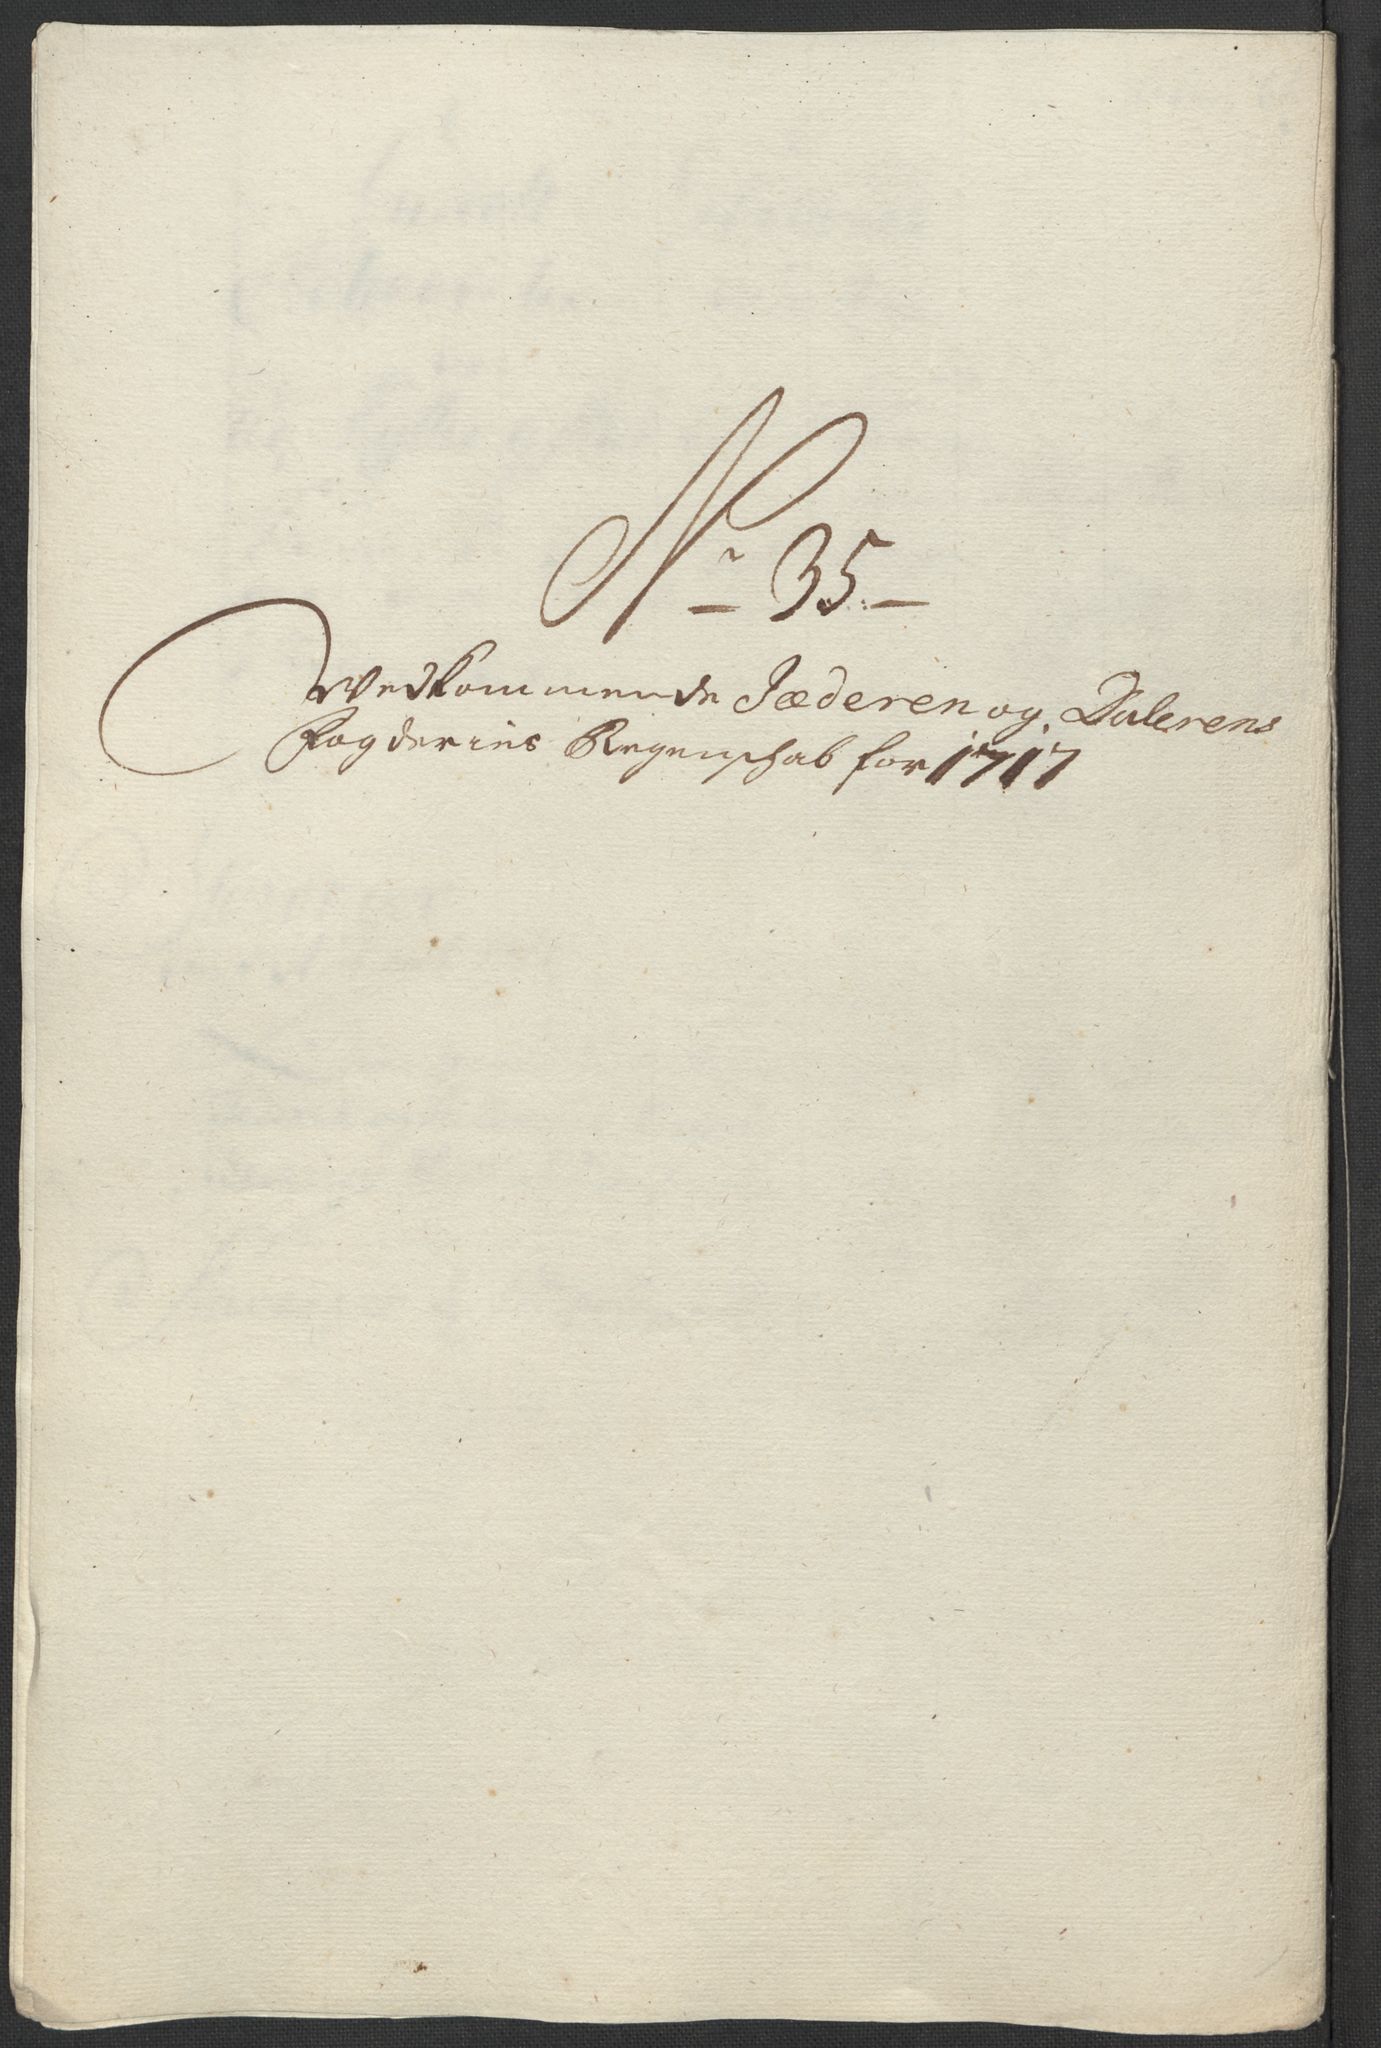 No 35
Vedkommende Jæderen og Dalerens
Fogderies Regenschab for 1717